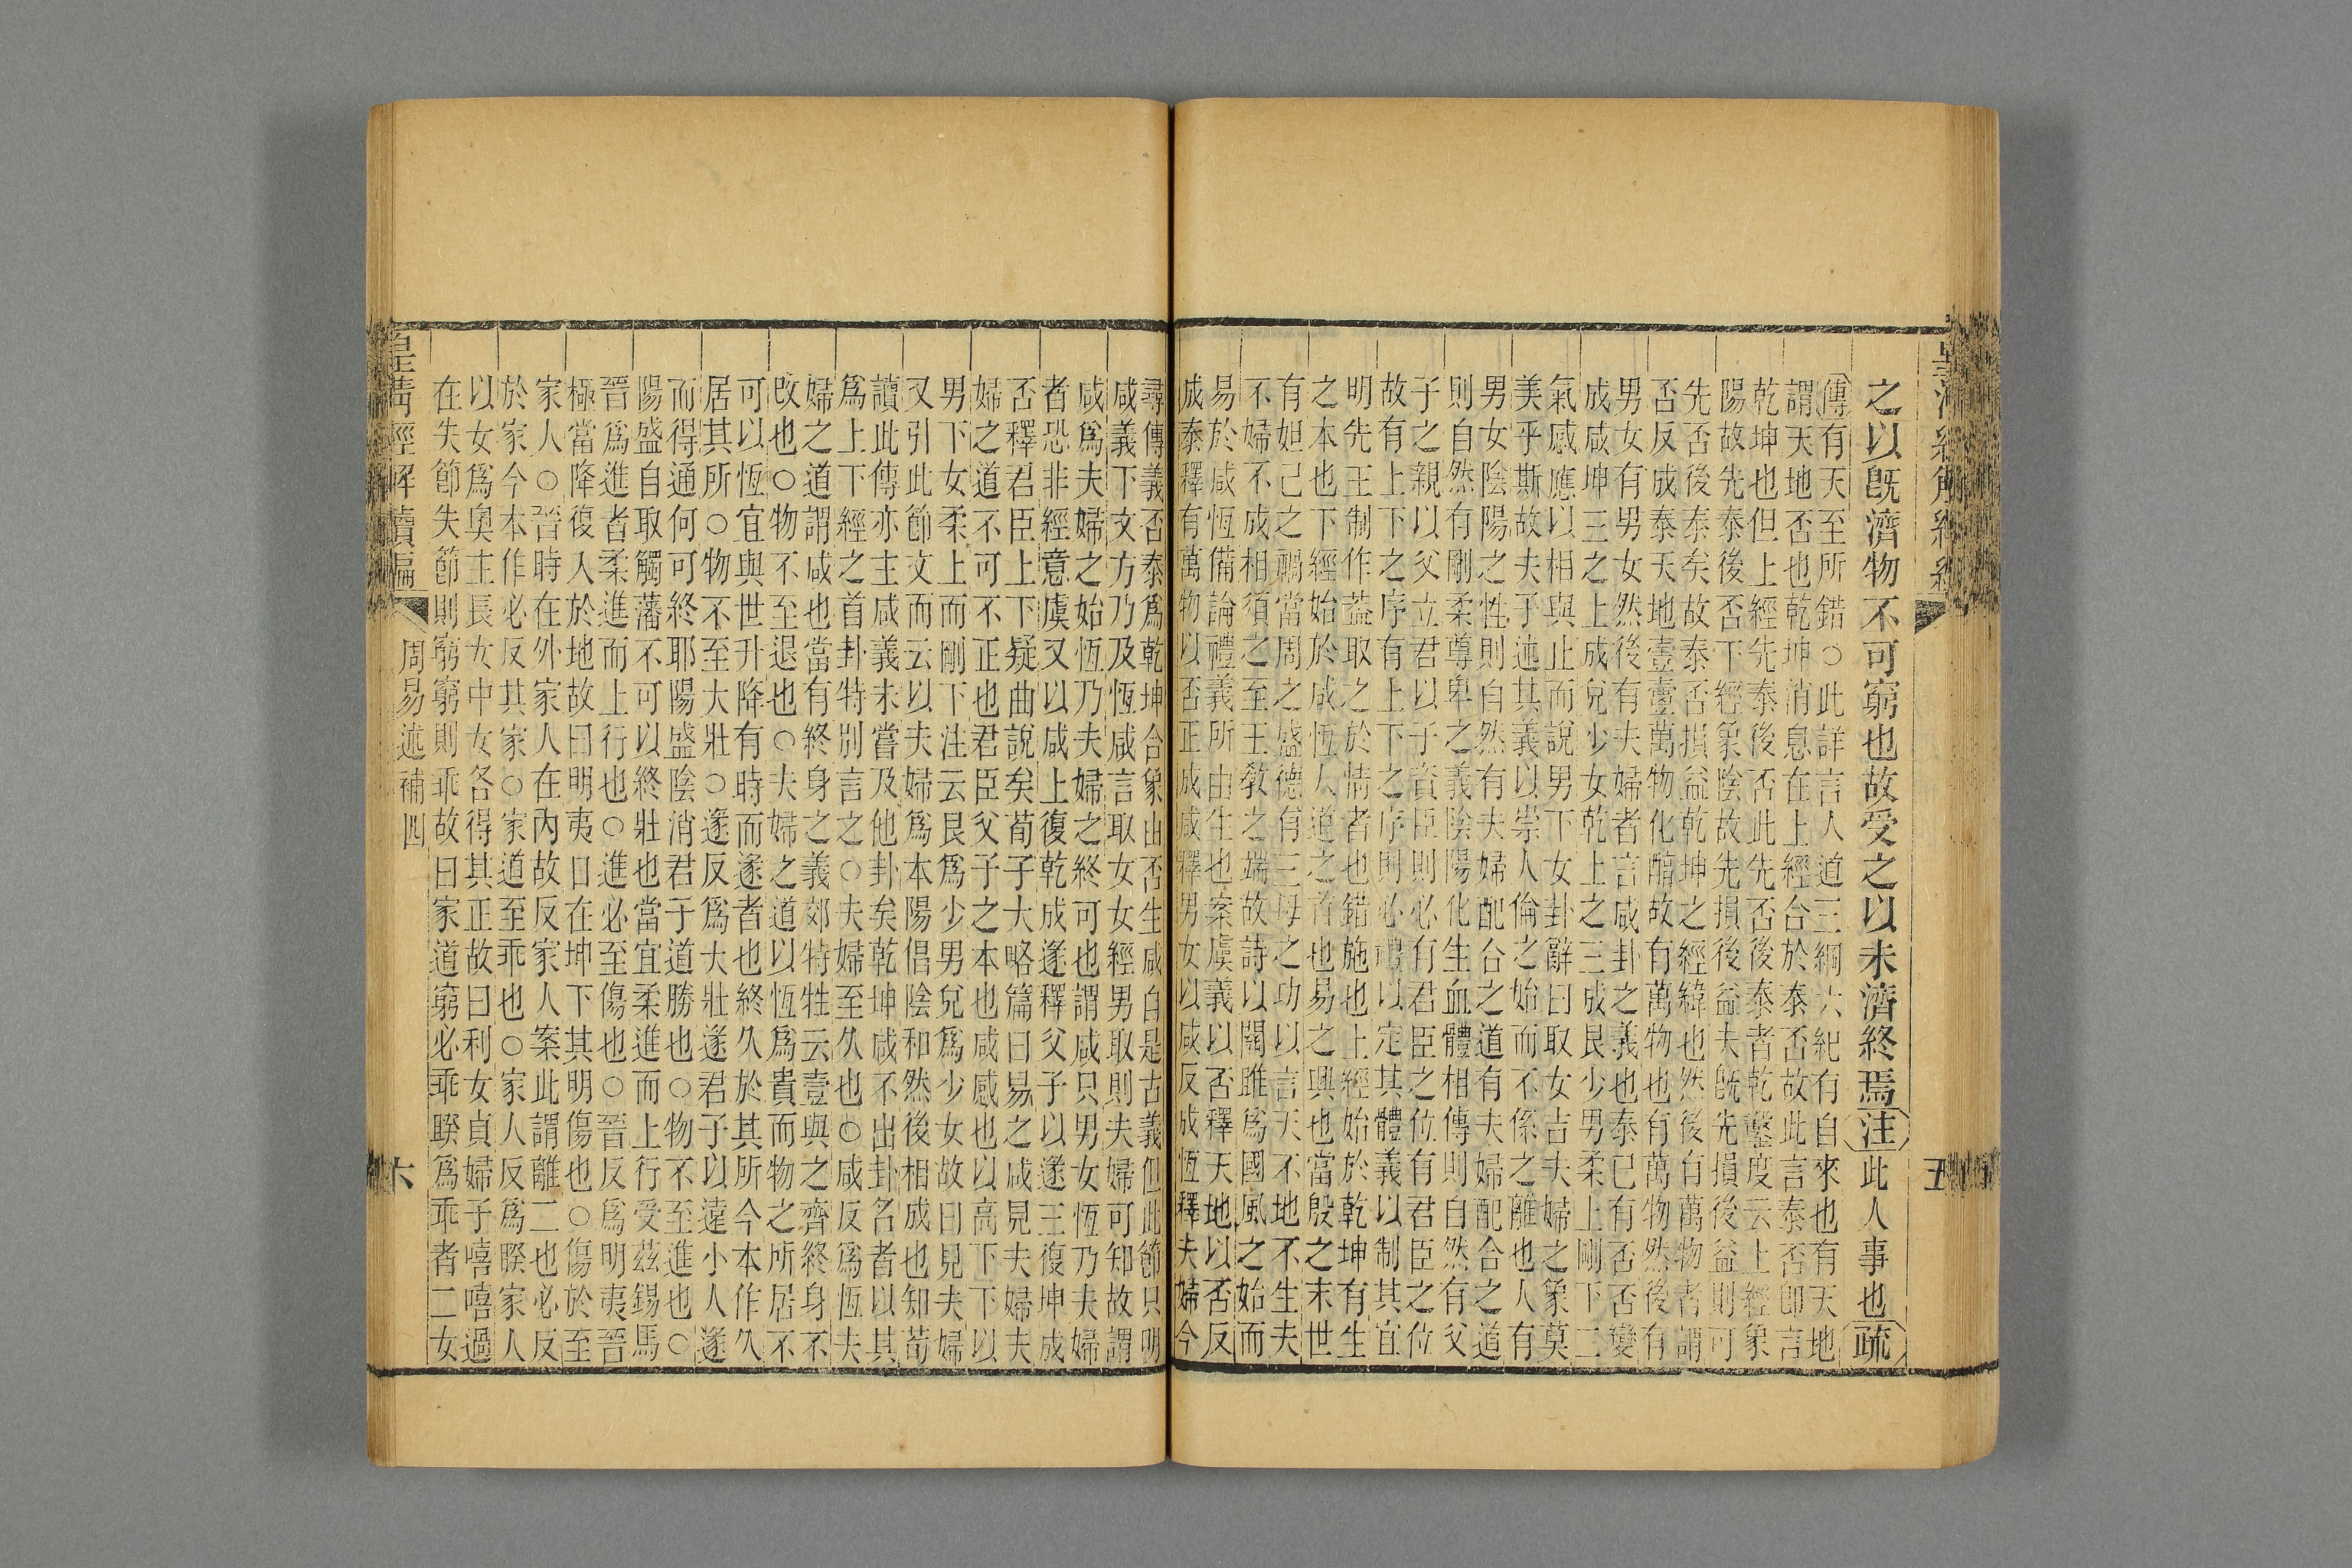 之以既濟物不可窮也故受之以未濟終焉注此人事也疏
傳有天至所錯○此詳言人道三綱六紀有自來也有天地
謂天地否也乾坤消息在上經合於泰否故此言泰否卽言
乾坤也但上經先泰後否此先否後泰者乾鑿度云上經象
陽故先泰後否下經象陰故先損後益夫旣先損後益則可
先否後泰矣故泰否損益乾坤之經緯也然後有萬物者謂
否反成泰天地壹壹萬物化醇故有萬物也有萬物然後有
男女有男女然後有夫婦者言咸卦之義也泰已有否否變
成咸坤三之上成兌少女乾上之三成艮少男柔上剛下二
氣感應以相與止而說男下女卦辭曰取女吉夫婦之象莫
美乎斯故夫子述其義以崇人倫之始而不係之離也人有
男女陰陽之性則自然有夫婦配合之道有夫婦配合之道
則自然有剛柔尊卑之義陰陽化生血體相傳則自然有父
子之親以父立君以子資臣則必有君臣之位有君臣之位
故有上下之序有上下之序則必禮以定其體義以制其宜
明先王制作葢取之於情者也錯施也上經始於乾坤有生
之本也下經始於咸恆人道之首也易之興也當殷之末世
有妲己之禍當周之盛德有三母之功以言天不地不生夫
不婦不成相須之至王敎之端故詩以關雎爲國風之始而
易於咸恆備論禮義所由生也案虞義以否釋天地以否反
成泰釋有萬物以否正成咸釋男女以咸反成恆釋夫婦今
尋傳義否泰爲乾坤合象由否生咸自是古義但此節只明
咸義下文方乃及恆咸言取女女經男取則夫婦可知故謂
咸爲夫婦之始恆乃夫婦之終可也謂咸只男女恆乃夫婦
者恐非經意虞又以咸上復乾成遂釋父子以遂三復坤成
否釋君臣上下疑曲說矣荀子大略篇曰易之咸見夫婦夫
婦之道不可不正也君臣父子之本也咸感也以高下下以
男下女柔上而剛下注云艮爲少男兌爲少女故曰見夫婦
又引此節文而云以夫婦爲本陽倡陰和然後相成也知荀
讀此傳亦主咸義未嘗及他卦矣乾坤咸不出卦名者以其
爲上下經之首卦特別言之○夫婦至久也○咸反爲恆夫
婦之道謂咸也當有終身之義郊特牲云壹與之齊終身不
改也○物不至退也○夫婦之道以恆爲貴而物之所居不
可以恆宜與世升降有時而遂者也終久於其所今本作久
居其所○物不至大壯○遂反爲大壯遂君子以遠小人遂
而得通何可終耶陽盛陰消君子道勝也○物不至進也○
陽盛自取觸藩不可以終壯也當宜柔進而上行受茲錫馬
晉爲進者柔進而上行也○進必至傷也○晉反爲明夷晉
極當降復入於地故曰明夷日在坤下其明傷也○傷於至
家人○晉時在外家人在內故反家人案此謂離二也必反
於家今本作必反其家○家道至乖也○家人反爲睽家人
以女爲奧主長女中女各得其正故曰利女貞婦子嘻嘻過
在失節失節則窮窮則乖故曰家道窮必乖睽爲乖者二女
周易述補四
五
六